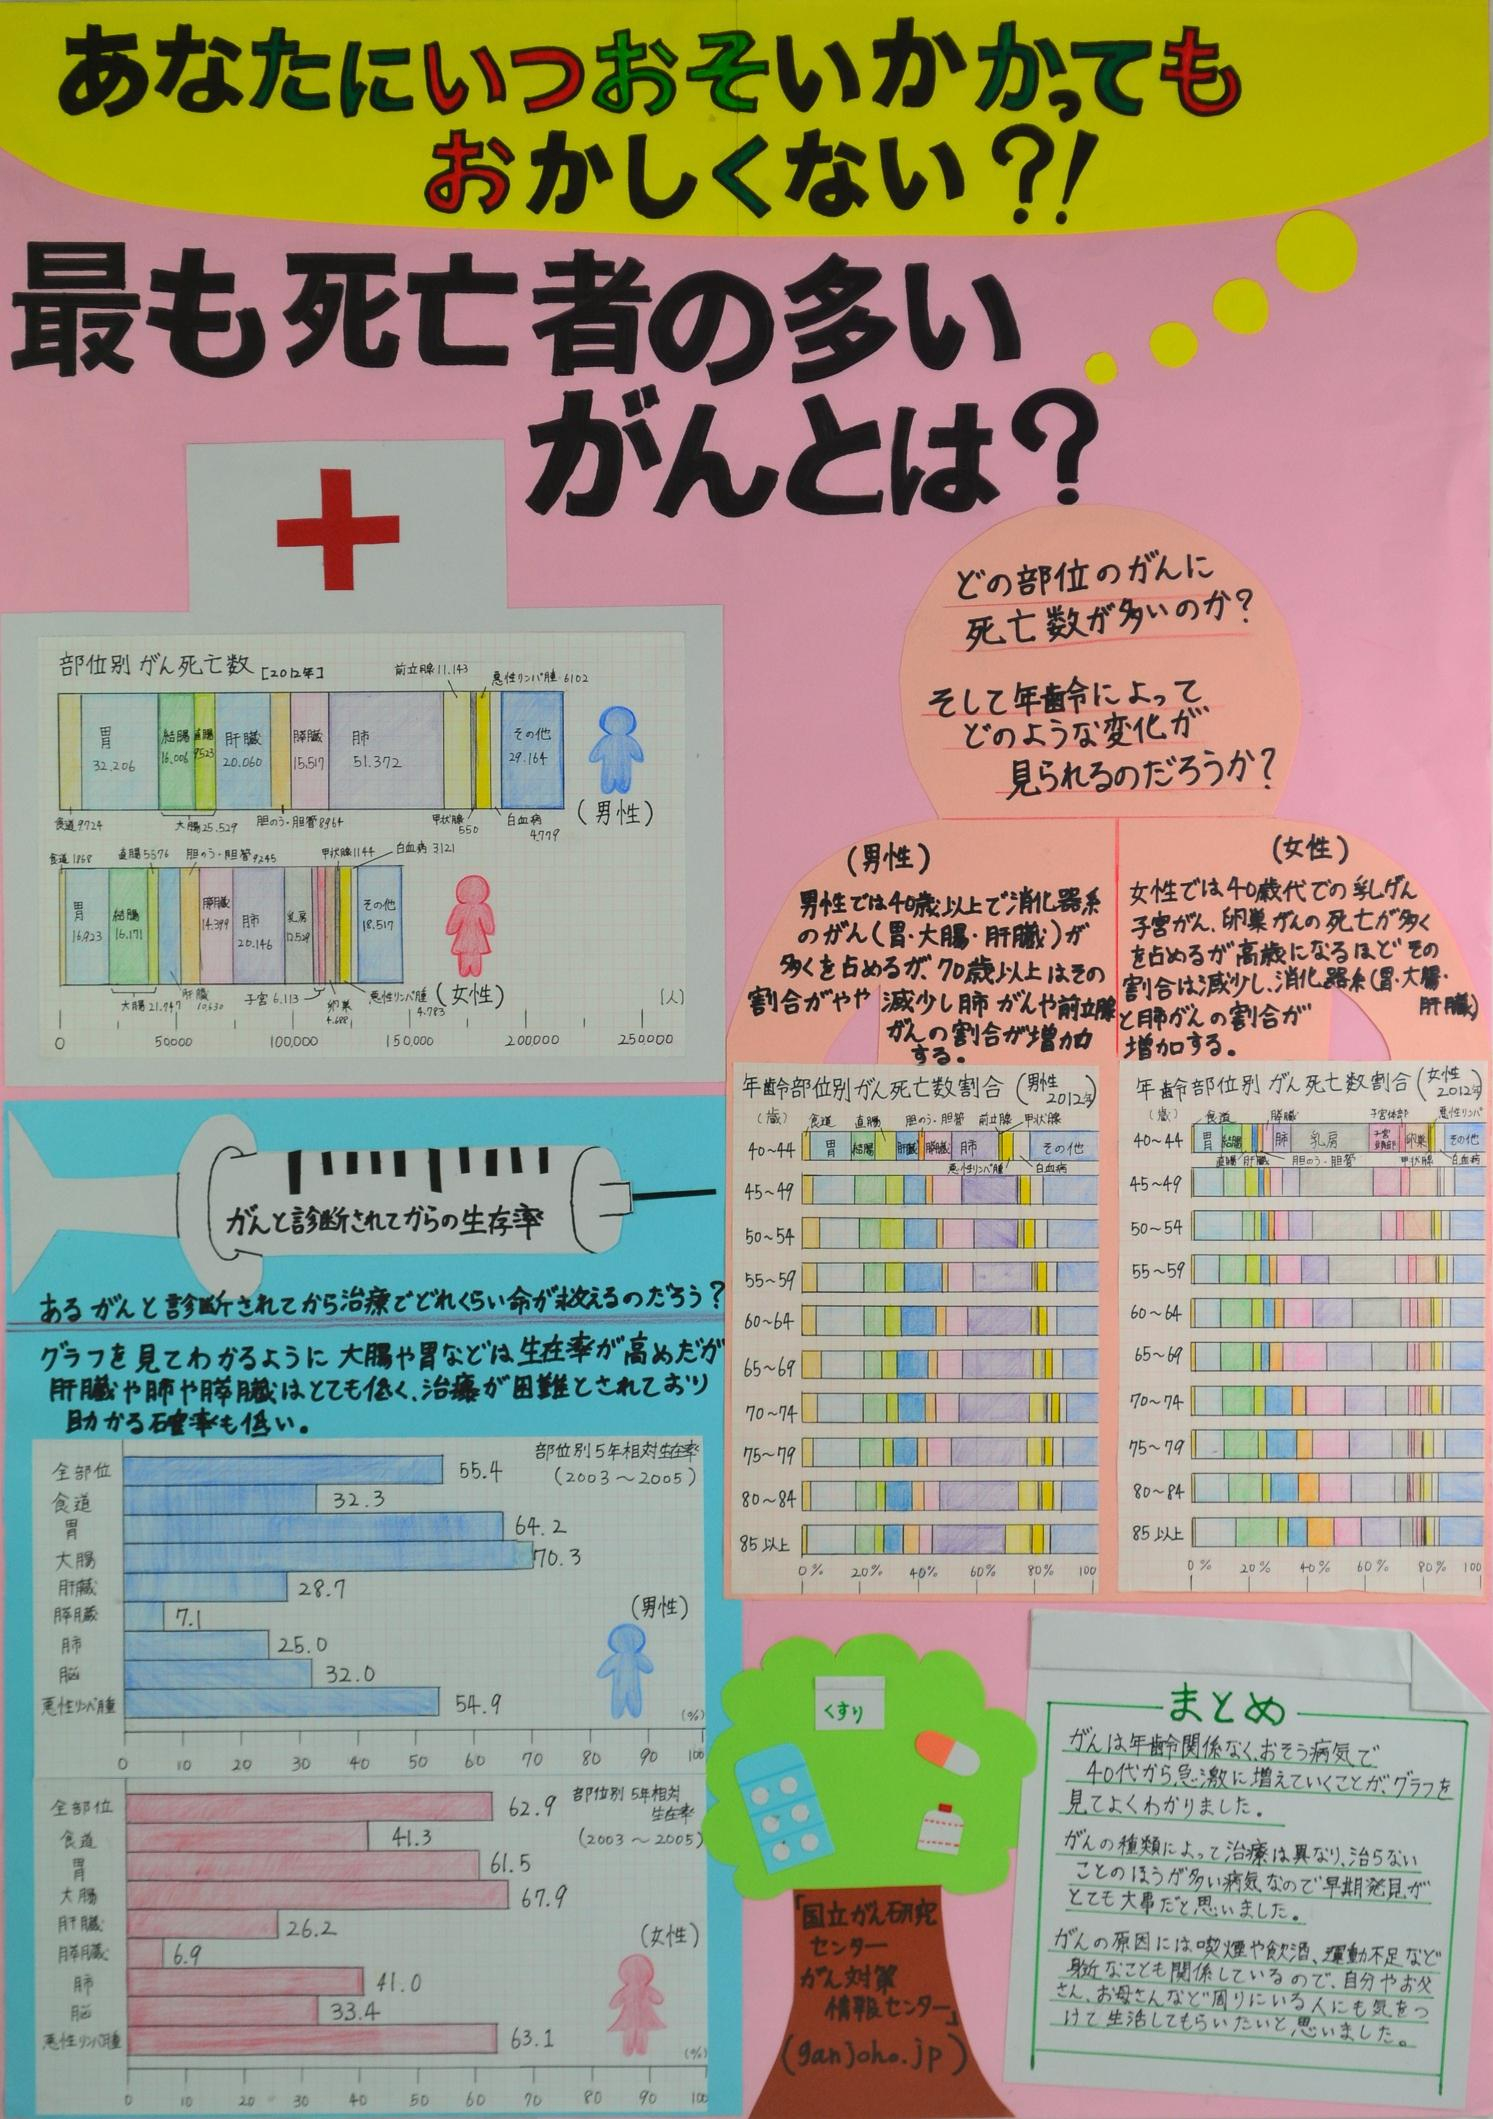 あなたにいつおそいかかっても
おかしくない?!
最も死亡者の多い
がんとは?
どの部位のがんに
死亡数が多いのか?
そして年齢によって
どのような変化が
見られるのだろうか?
部位別がん死亡数[2012年]
前立腺11.143
悪性リンパ腫6102
胃
32.206
結腸
16.006
直腸
9523
肝臓
20.060
膵臓
15.517
肺
51.372
その他
29.164
食道9724
大腸25.529
胆のう・胆管8964
甲状腺
550
白血病
4.779
(男性)
食道1868
直腸5576
胆のう・胆管9245
甲状腺1144
白血病3121
胃
16.923
結腸
16.171
膵臓
14.399
肺
20.146
乳房
12.529
その他
18.517
大腸21.747
肝臓
10.630
子宮6.113
卵巣
4.688
悪性リンパ腫
4.783
(女性)
[人]
0 50,000 100,000 150,000 200,000 250,000
(男性)
男性では40歳以上で消化器系
のがん(胃・大腸・肝臓)が
多くを占めるが、70歳以上はその
割合がやや減少し肺がんや前立腺
がんの割合が増加
する。
(女性)
女性では40歳代での乳がん
子宮がん、卵巣がんの死亡が多く
を占めるが高歳になるほどその
割合は減少し、消化器系(胃・大腸・
肝臓)
と肺がんの割合が
増加する。
年齢部位別がん死亡数割合(男性
2012年)
(歳)
食道 直腸 胆のう・胆管 前立腺 甲状腺
40~44 胃 結腸 肝臓 膵臓 肺 その他
悪性リンパ腫 白血病
45~49
50~54
55~59
60~64
65~69
70~74
75~79
80~84
85以上
0% 20% 40% 60% 80% 100
年齢部位別がん死亡数割合(女性
2012年)
(歳)
食道 膵臓 子宮体部 悪性リンパ
40~44 胃 結腸 肺 乳房 子宮頸部 卵巣 その他
直腸 肝臓 胆のう・胆管 甲状腺 白血病
45~49
50~54
55~59
60~64
65~69
70~74
75~79
80~84
85以上
0% 20% 40% 60% 80% 100
がんと診断されてからの生存率
あるがんと診断されてから治療でどれくらい命が救えるのだろう?
グラフを見てわかるように大腸や胃などは生存率が高めだが
肝臓や肺や膵臓はとても低く、治療が困難とされており
助かる確率も低い。
部位別5年相対生存率
(2003~2005)
全部位 55.4
食道 32.3
胃 64.2
大腸 70.3
肝臓 28.7
膵臓 7.1
肺 25.0
脳 32.0
悪性リンパ腫 54.9
(男性)
(%)
0 10 20 30 40 50 60 70 80 90 100
部位別5年相対
生存率
(2003~2005)
全部位 62.9
食道 41.3
胃 61.5
大腸 67.9
肝臓 26.2
膵臓 6.9
肺 41.0
脳 33.4
悪性リンパ腫 63.1
(女性)
(%)
0 10 20 30 40 50 60 70 80 90 100
くすり
「国立がん研究
センター
がん対策
情報センター」
(ganjoho.jp)
まとめ
がんは年齢関係なく、おそう病気で
40代から急激に増えていくことが、グラフを
見てよくわかりました。
がんの種類によって治療は異なり、治らない
ことのほうが多い病気なので早期発見が
とても大事だと思いました。
がんの原因には喫煙や飲酒、運動不足など
身近なことも関係しているので、自分やお父
さん、お母さんなど周りにいる人にも気をつ
けて生活してもらいたいと思いました。